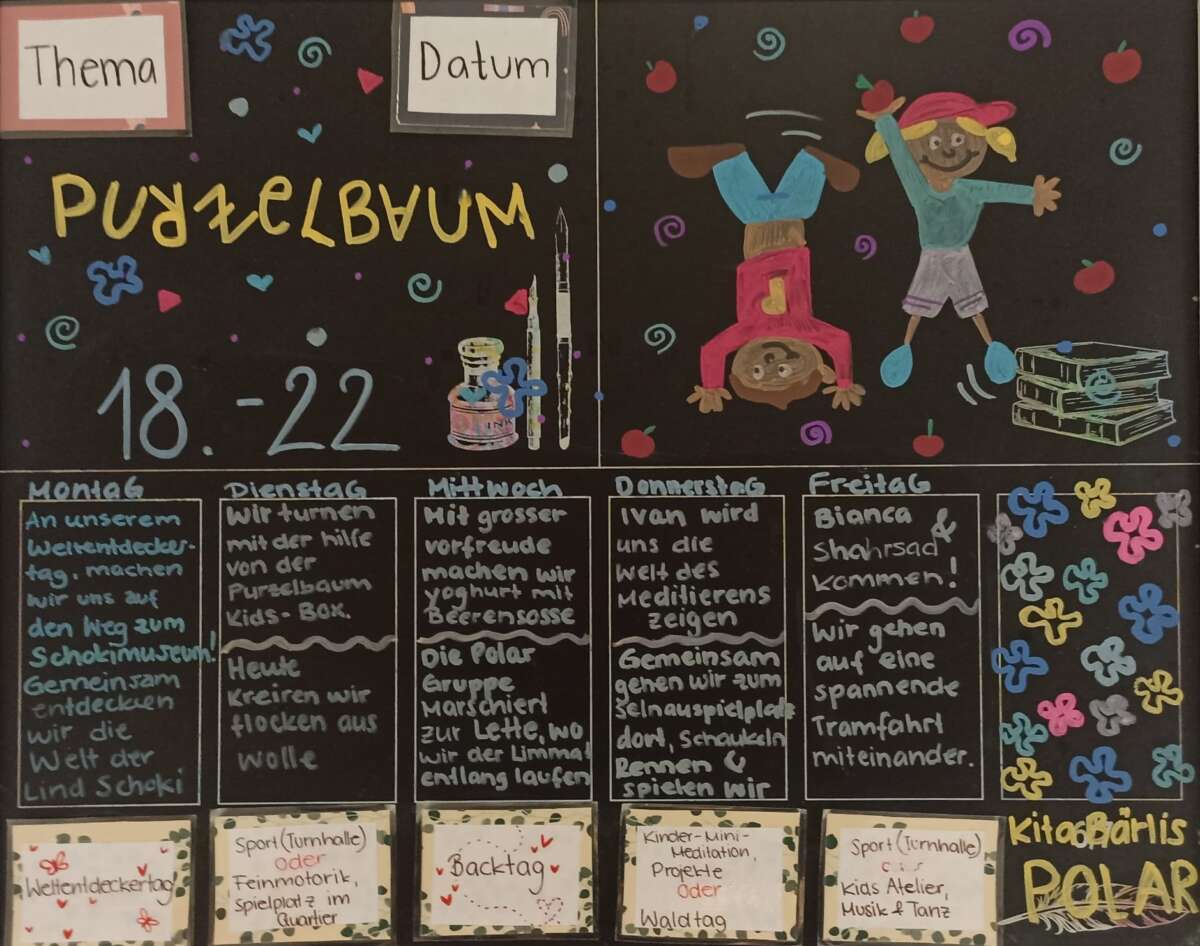 Thema
Datum
PURZELBAUM
18. - 22
INK
Montag
An unserem
Weltentdecker-
tag, machen
wir uns auf
den Weg zum
Schokimuseum!
Gemeinsam
entdecken
wir die
Welt der
Lind Schoki
Dienstag
Wir turnen
mit der hilfe
von der
Purzelbaum
Kids-Box.
Heute
Kreiren wir
flocken aus
wolle
Mittwoch
Mit grosser
vorfreude
machen wir
yoghurt mit
Beerensosse
Die Polar
Gruppe
Marschiert
zur Lette, wo
wir der Limmat
entlang laufen
Donnerstag
Ivan wird
uns die
Welt des
Meditierens
zeigen
Gemeinsam
gehen wir zum
Selnauspielplatz
dort, Schaukeln
Rennen &
spielen wir
Freitag
Bianca &
Shahrsad
kommen!
Wir gehen
auf eine
spannende
Tramfahrt
miteinander.
Weltentdeckertag
Sport (Turnhalle)
oder
Feinmotorik,
Spielplatz im
Quartier
Backtag
Kinder-Mini-
Meditation,
Projekte
oder
Waldtag
Sport (Turnhalle)
Kids Atelier,
Musik & Tanz
Kita Bärlis
POLAR